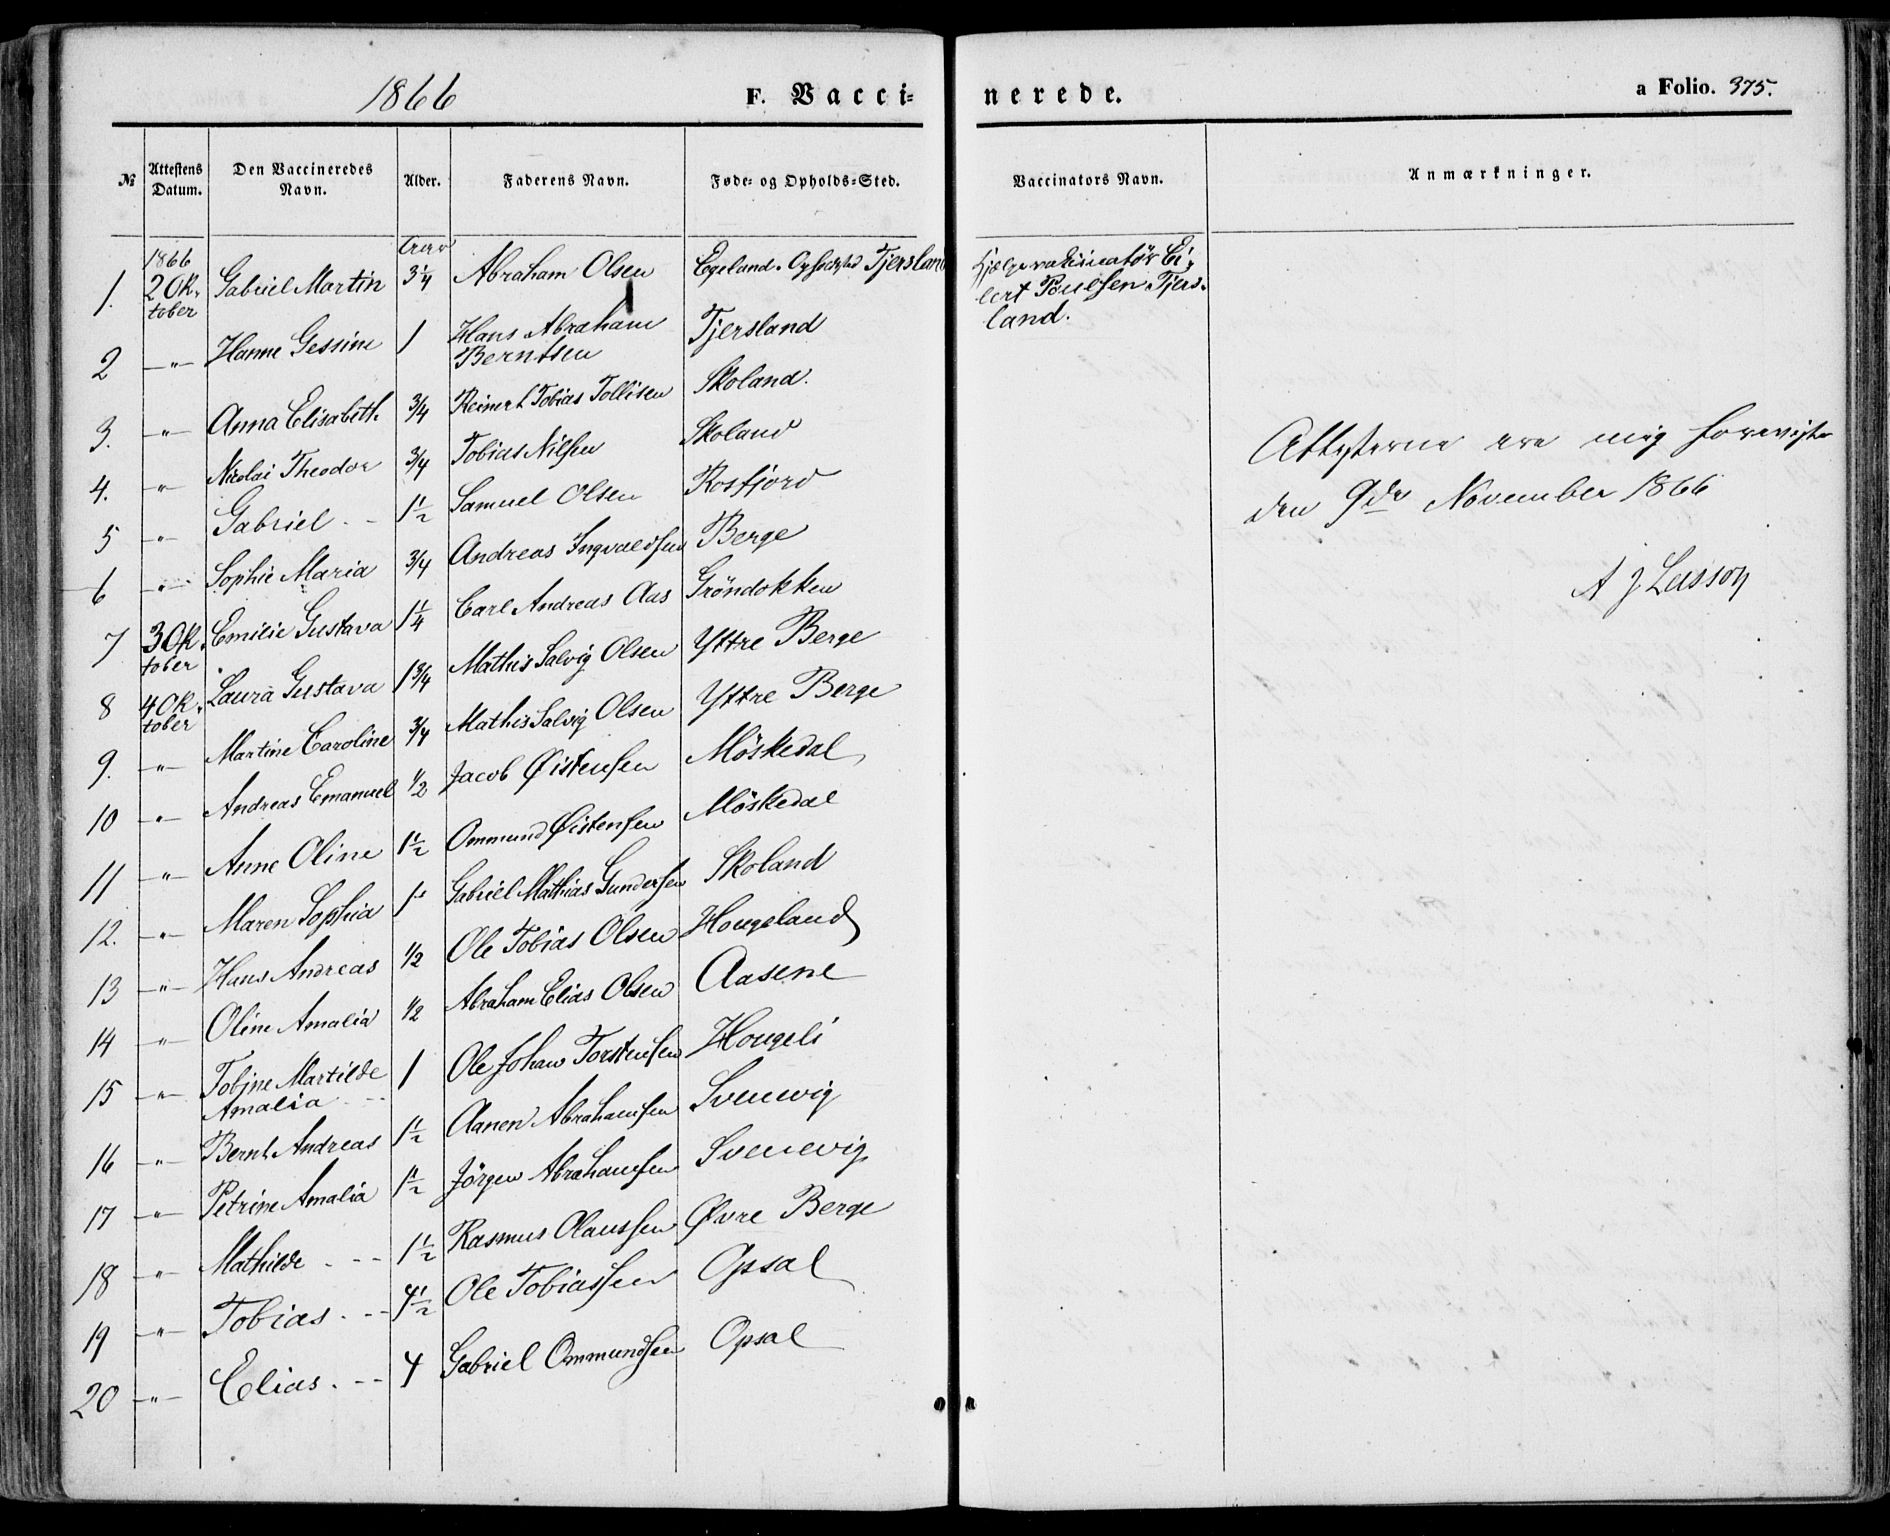 1866 F. Vacci= nerede. a Folio. 375.
№ Attestens Datum. Den Vaccineredes Navn. Alder. Faderens Navn. Føde- og Opholds-Sted. Vaccinators Navn. Anmærkninger.
1866 Aar
1. 2 Ok- Gabriel Martin 3¼ Abraham Olsen Egeland. Opholdsted Tjersland Hjelpevakcinatør Ei-
tober lert Poulsen Tjers-
land.
2 -"- Hanne Gessine 1 Hans Abraham Tjersland
Berntsen
3. -"- Anna Elisabeth ¾ Reinert Tobias Tollisen Skoland.
4. -"- Nicolai Theodor ¾ Tobias Nilsen Skoland
5 -"- Gabriel - - 1½ Samuel Olsen Rosfjord
6 -"- Sophie Maria ¾ Andreas Ingvaldsen Berge
7 3 Ok- Emilie Gustava 1¼ Carl Andreas Aas Gröndokken
tober
8 4 Ok- Laura Gustava 1¾ Mathis Salvig Olsen Yttre Berge
tober
9. -"- Martine Caroline ¾ Mathis Salvig Olsen Yttre Berge
10 -"- Andreas Emanuel ½ Jacob Øistensen Möskedal
11 -"- Anne Oline 1½ Ommund Øistensen Möskedal
12. -"- Maren Sophia 1 Gabriel Mathias Gundersen Skoland
13 -"- Hans Andreas ½ Ole Tobias Olsen Hougeland
14 -"- Oline Amalia ½ Abraham Elias Olsen Aasene
15 -"- Tobine Martilde 1 Ole Johan Torstensen Hougeli
Amalia - -
16 -"- Bernt Andreas 1½ Aanen Abrahamsen Svenevig
17 -"- Petrine Amalia 1½ Jörgen Abrahamsen Svenevig
18 -"- Mathilde - - - 1½ Rasmus Olaussen Øvre Berge
19 -"- Tobias. - - 4½ Ole Tobiassen Opsal
20 -"- Elias. - - 4 Gabriel Ommundsen Opsal
Attesterne ere mig foreviste
den 9de November 1866
A J Lasson